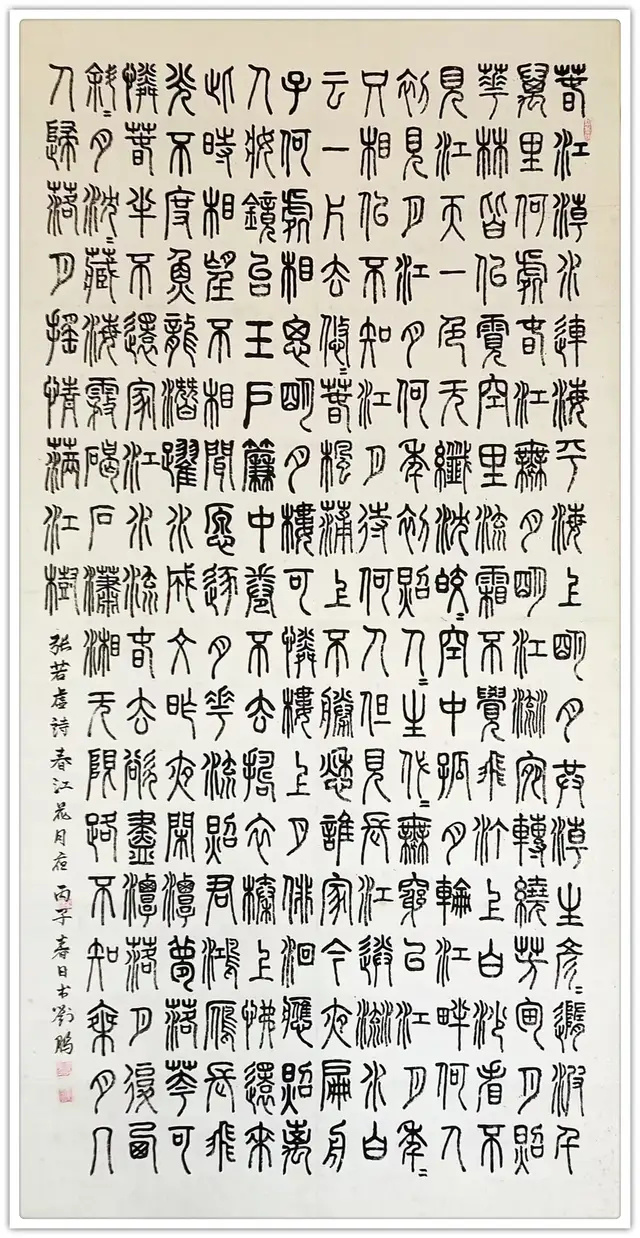 春江潮水連海平海上明月共潮生灩〻隨波千
萬里何處春江無月明江流宛轉繞芳甸月照
華林皆似霰空里流霜不覺飛汀上白沙看不
見江天一色无纖塵皎〻空中孤月輪江畔何人
初見月江月何年初照人〻生代〻無窮已江月年〻
只相似不知江月待何人但見長江送流水白
云一片去悠〻青楓浦上不勝愁誰家今夜扁舟
子何處相思明月樓可憐樓上月徘徊應照離
人妝鏡台玉戶簾中卷不去搗衣砧上拂還來
此時相望不相聞愿逐月華流照君鴻雁長飛
光不度魚龍潛躍水成文昨夜閑潭夢落華可
憐春半不還家江水流春去欲盡潭落月復西
斜〻月沈〻藏海霧碣石瀟湘无限路不知乘月几
人歸落月搖情滿江樹
张若虚詩春江花月夜丙子春日书劉鵬